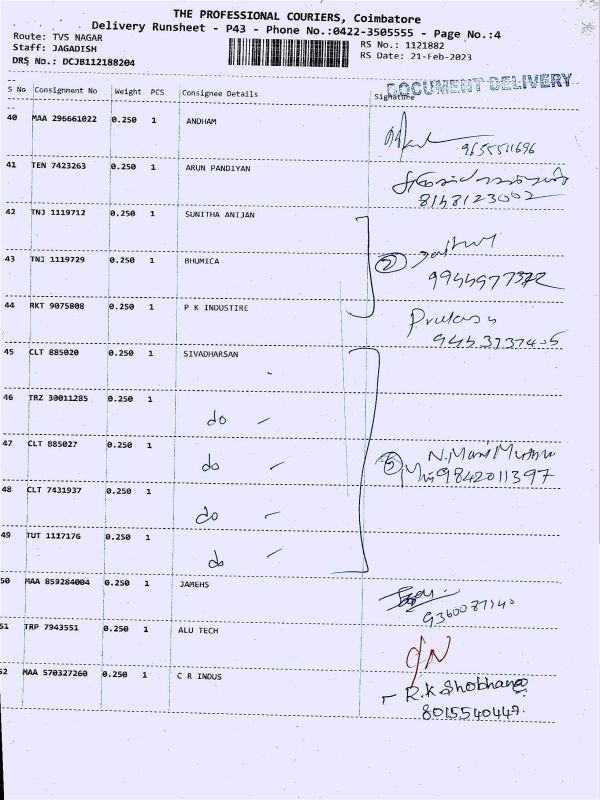 THE PROFESSIONAL COURIERS, Coimbatore
Delivery Runsheet - P43 - Phone No.:0422-3505555 - Page No.:4
Route: TVS NAGAR
RS No.: 1121882
Staff: JAGADISH
RS Date: 21-Feb-2023
DRS No.: DCJB112188204
DOCUMENT DELIVERY
S No Consignment No Weight PCS Consignee Details Signature
40 MAA 296661022 0.250 1 ANDHAM
9655511696
41 TEN 7423263 0.250 1 ARUN PANDIYAN
8148123002
42 TNJ 1119712 0.250 1 SUNITHA ANIJAN
43 TNJ 1119729 0.250 1 BHUMICA
2
44 RKT 9075808 0.250 1 P K INDUSTIRE
45 CLT 885020 0.250 1 SIVADHARSAN
46 TRZ 30011285 0.250 1
do -
47 CLT 885027 0.250 1
do -
5 N. Mani Muthu
9842011397
48 CLT 7431937 0.250 1
do -
49 TUT 1117176 0.250 1
do -
50 MAA 859284004 0.250 1 JAMEHS
51 TRP 7943551 0.250 1 ALU TECH
52 MAA 570327260 0.250 1 C R INDUS
R.K Shobhana
8015540447